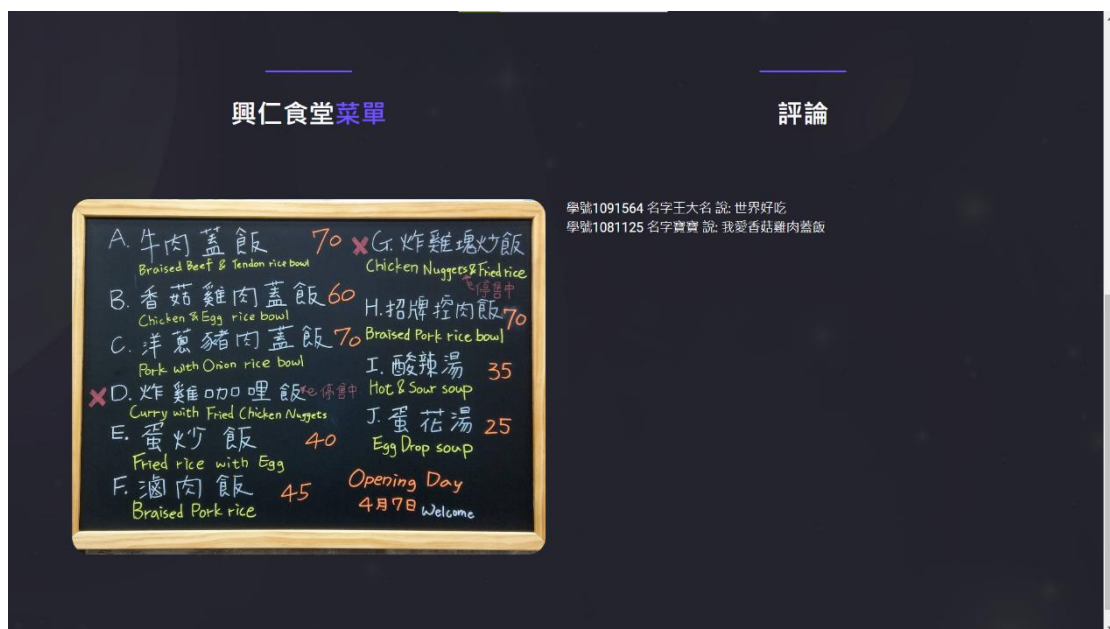 興仁食堂菜單
A. 牛肉蓋飯 70
Braised Beef & Tendon rice bowl
B. 香菇雞肉蓋飯 60
Chicken & Egg rice bowl
C. 洋蔥豬肉蓋飯 70
Pork with Onion rice bowl
D. 炸雞咖哩飯 停售中
Curry with Fried Chicken Nuggets
E. 蛋炒飯 40
Fried rice with Egg
F. 滷肉飯 45
Braised Pork rice
G. 炸雞塊炒飯
Chicken Nuggets & Fried rice
停售中
H. 招牌控肉飯 70
Braised Pork rice bowl
I. 酸辣湯 35
Hot & Sour soup
J. 蛋花湯 25
Egg Drop soup
Opening Day
4月7日 Welcome
評論
學號1091564 名字王大名 說: 世界好吃
學號1081125 名字寶寶 說: 我愛香菇雞肉蓋飯